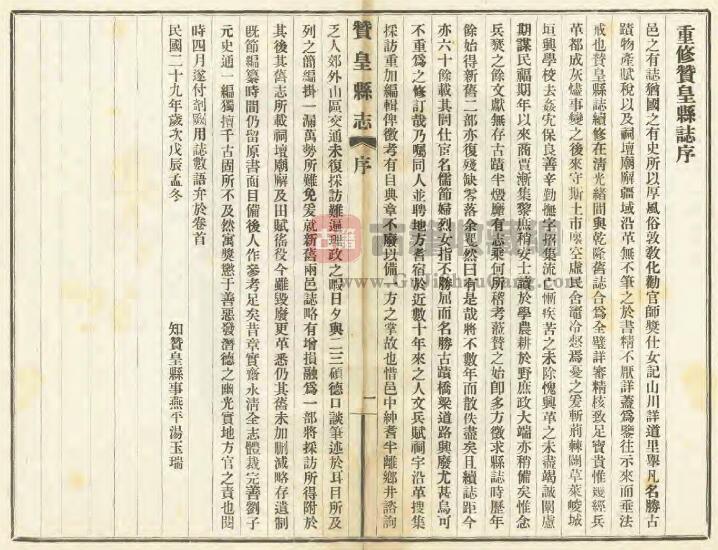 重修贊皇縣誌序
邑之有誌猶國之有史所以厚風俗敦教化勸官師獎仕女記山川詳道里舉凡名勝古
蹟物產賦稅以及祠壇廟廨疆域沿革無不筆之於書精不厭詳蓋爲鑒往示來而垂法
戒也贊皇縣誌續修在清光緒間與乾隆舊誌合爲全璧詳審精核致足寶貴惟嫚經兵
革都成灰燼事變之後來守斯土市廛空虛民舍竈冷怒焉憂之爰斬荊棘闢草萊峻城
垣興學校去姦宄保良善辛勤撫字招集流亡慚疾苦之未除愧興革之未盡竭誠闡慮
期謀民福期年以來商賈漸集黎庶稍安士讀於學農耕於野庶政大端亦稍備矣惟念
兵燹之餘文獻無存古蹟半燬雖有志乘何所稽考蒞贊之始卽多方徵求縣誌時歷年
餘始得新舊二部亦復殘缺零落余戛然曰有是哉將不數年而散佚盡矣且續誌距今
亦六十餘載其間仕宦名儒節婦烈女指不勝屈而名勝古蹟橋梁道路興廢尤甚烏可
不重爲之修訂哉乃囑同人並聘地方耆宿於近數十年來之人文兵賦祠宇沿革搜集
採訪重加編輯俾徵考有自典章不廢以備一方之掌故也惜邑中紳耆半離鄉井諮詢
贊皇縣志 序 一
乏人郊外山區交通未復採訪難遍理政之暇日夕與二三碩德口談筆述於耳目所及
列之簡編掛一漏萬勢所難免爰就新舊兩邑誌略有增損融爲一部將採訪所得附於
其後其舊志所載祠壇廟廨及田賦徭役今雖毀廢更革悉仍其舊未加刪減略存遺制
旣節編纂時間仍留原書面目備後人作參考足矣昔章實齋永清全志體裁完善劉子
元史通一編獨擅千古固所不及然寓獎懲于善惡發潛德之幽光實地方官之責也閱
時四月遂付剞劂用誌數語弁於卷首
民國二十九年歲次戊辰孟冬
知贊皇縣事燕平湯玉瑞
古籍收藏網
www.GuJiShuCang.com